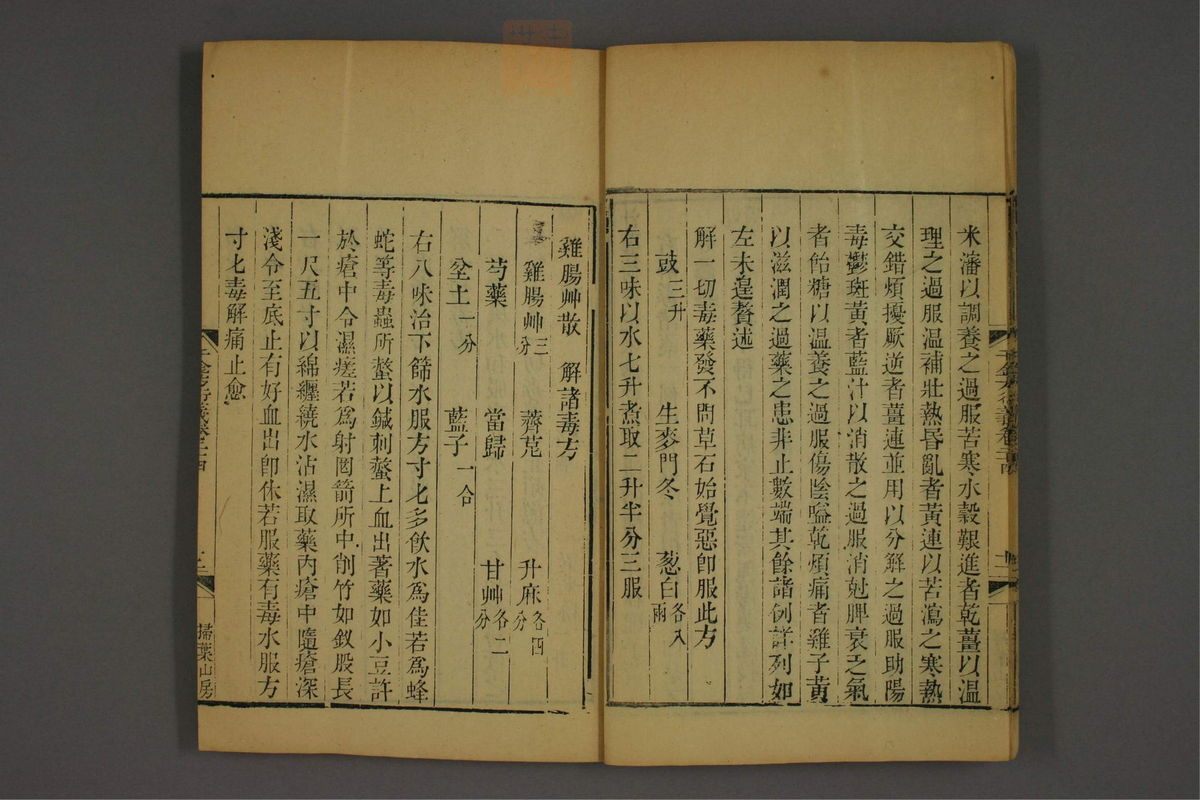 米瀋以調養之過服苦寒水穀艱進者乾薑以溫
理之過服溫補壯熱昏亂者黃連以苦瀉之寒熱
交錯煩擾厥逆者薑連並用以分解之過服助陽
毒鬱斑黃者藍汁以消散之過服消尅脾衰乏氣
者飴糖以溫養之過服傷陰嗌乾煩痛者雞子黃
以滋潤之過藥之患非止數端其餘諸例詳列如
左未遑贅述
解一切毒藥發不問草石始覺惡卽服此方
豉三升 生麥門冬 葱白各八兩
右三味以水七升煮取二升半分三服
雞腸艸散 解諸毒方
雞腸艸三分 薺苨 升麻各四分
芍藥 當歸 甘艸各二分
坌土一分 藍子一合
右八味治下篩水服方寸匕多飲水爲佳若爲蜂
蛇等毒蟲所螫以鍼刺螫上血出著藥如小豆許
於瘡中令濕瘥若爲射罔箭所中削竹如釵股長
一尺五寸以綿纏繞水沾濕取藥內瘡中隨瘡深
淺令至底止有好血出卽休若服藥有毒水服方
寸匕毒解痛止愈
掃葉山房